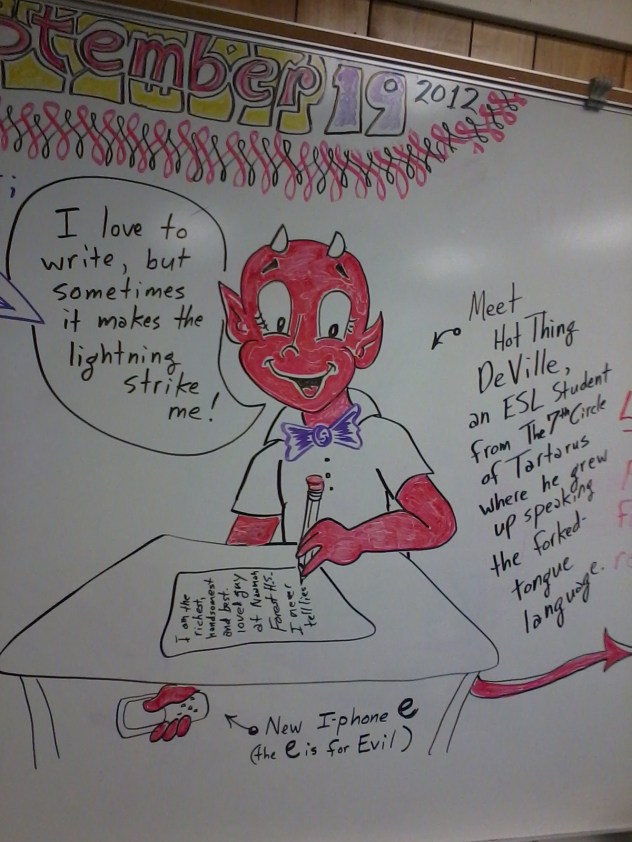 ptember 19 2012
I love to
write, but
sometimes
it makes the
lightning
strike
me!
Meet
Hot Thing
DeVille,
an ESL Student
from The 7th Circle
of Tartarus
where he grew
up speaking
the forked-
tongue
language.
I am the
richest,
handsomest
and best-
loved guy
at Newman
Forest H.S.
I never
tell lies
New I-phone e
(the e is for Evil)